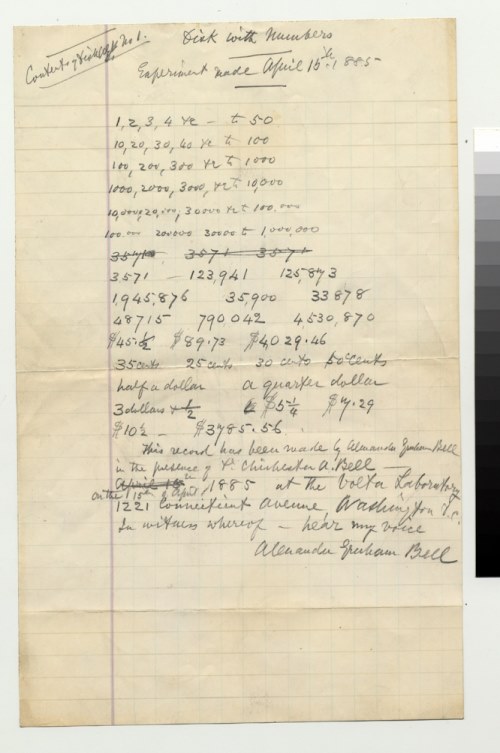 Contents of Disk No 1.
Disk with Numbers
Experiment made April 15th 1885
1, 2, 3, 4 &c — to 50
10, 20, 30, 40 &c to 100
100, 200, 300 &c to 1000
1000, 2000, 3000, &c to 10,000
10,000, 20,000, 30000 &c to 100.000
100.000 200000 30000 to 1,000,000
3571 3571
3571 — 123,941 125,873
1,945,876 35,900 33878
48715 790042 4,530,870
$45.½ $89.73 $4,029.46
35 cents 25 cents 30 cents 50 cents
half a dollar a quarter dollar
3 dollars & ½ $5¼ $7.29
$10½ — $3785.56.
This record has been made by Alexander Graham Bell
in the presence of Dr. Chichester A. Bell —
on the 15th of April / 1885 at the Volta Laboratory
1221 Connecticut Avenue, Washington D.C.
In witness whereof — hear my voice
Alexander Graham Bell